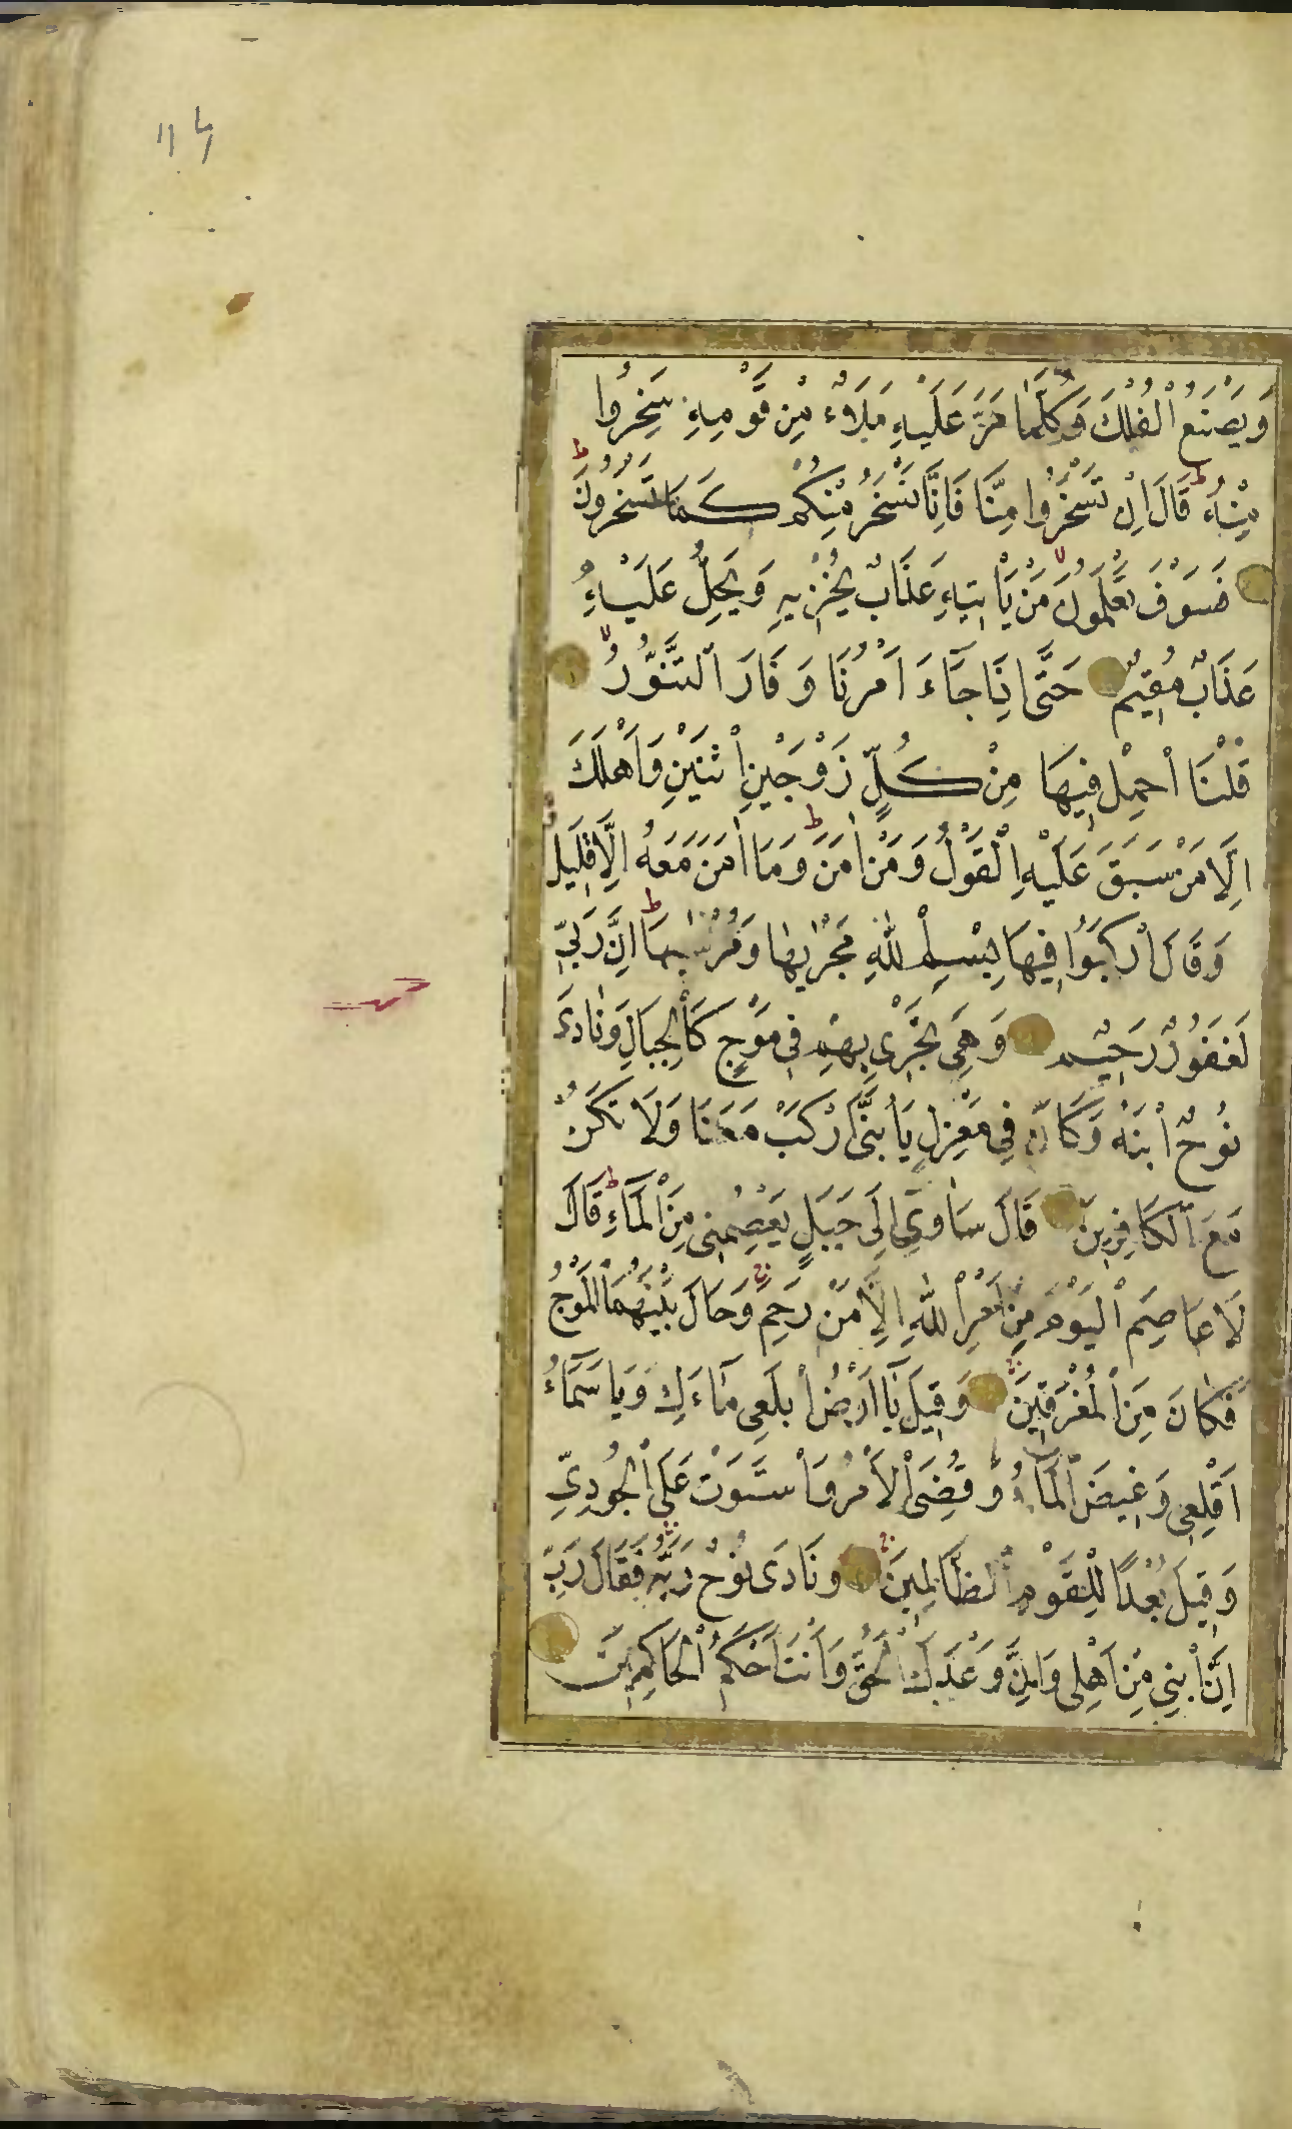 وَيَصْنَعُ الْفُلْكَ وَكُلَّمَا مَرَّ عَلَيْهِ مَلَاءٌ مِنْ قَوْمِهِ سَخِرُوا
مِنْهُ ط قَالَ اِنْ تَسْخَرُوا مِنَّا فَاِنَّا نَسْخَرُ مِنْكُمْ كَمَا تَسْخَرُونَ ط
فَسَوْفَ تَعْلَمُونَ لا مَنْ يَاْتِيهِ عَذَابٌ يُخْزِيهِ وَيَحِلُّ عَلَيْهِ
عَذَابٌ مُقِيمٌ حَتَّى اِذَا جَآءَ اَمْرُنَا وَفَارَ التَّنُّورُ لا
قُلْنَا احْمِلْ فِيهَا مِنْ كُلٍّ زَوْجَيْنِ اثْنَيْنِ وَاَهْلَكَ
اِلَّا مَنْ سَبَقَ عَلَيْهِ الْقَوْلُ وَمَنْ اٰمَنَ ط وَمَا اٰمَنَ مَعَهُ اِلَّا قَلِيلٌ
وَقَالَ ارْكَبُوا فِيهَا بِسْمِ اللّٰهِ مَجْرٰيهَا وَمُرْسٰيهَا ط اِنَّ رَبِّي
لَغَفُورٌ رَحِيمٌ وَهِيَ تَجْرِي بِهِمْ فِي مَوْجٍ كَالْجِبَالِ وَنَادٰى
نُوحٌ ابْنَهُ وَكَانَ فِي مَعْزِلٍ يَا بُنَيَّ ارْكَبْ مَعَنَا وَلَا تَكُنْ
مَعَ الْكَافِرِينَ قَالَ سَاٰوِي اِلَى جَبَلٍ يَعْصِمُنِي مِنَ الْمَاءِ ط قَالَ
لَا عَاصِمَ الْيَوْمَ مِنْ اَمْرِ اللّٰهِ اِلَّا مَنْ رَحِمَ ج وَحَالَ بَيْنَهُمَا الْمَوْجُ
فَكَانَ مِنَ الْمُغْرَقِينَ وَقِيلَ يَا اَرْضُ ابْلَعِي مَاءَكِ وَيَا سَمَآءُ
اَقْلِعِي وَغِيضَ الْمَاءُ وَقُضِيَ الْاَمْرُ وَاسْتَوَتْ عَلَى الْجُودِيِّ
وَقِيلَ بُعْدًا لِلْقَوْمِ الظَّالِمِينَ وَنَادَى نُوحٌ رَبَّهُ فَقَالَ رَبِّ
اِنَّ ابْنِي مِنْ اَهْلِي وَاِنَّ وَعْدَكَ الْحَقُّ وَاَنْتَ اَحْكَمُ الْحَاكِمِينَ